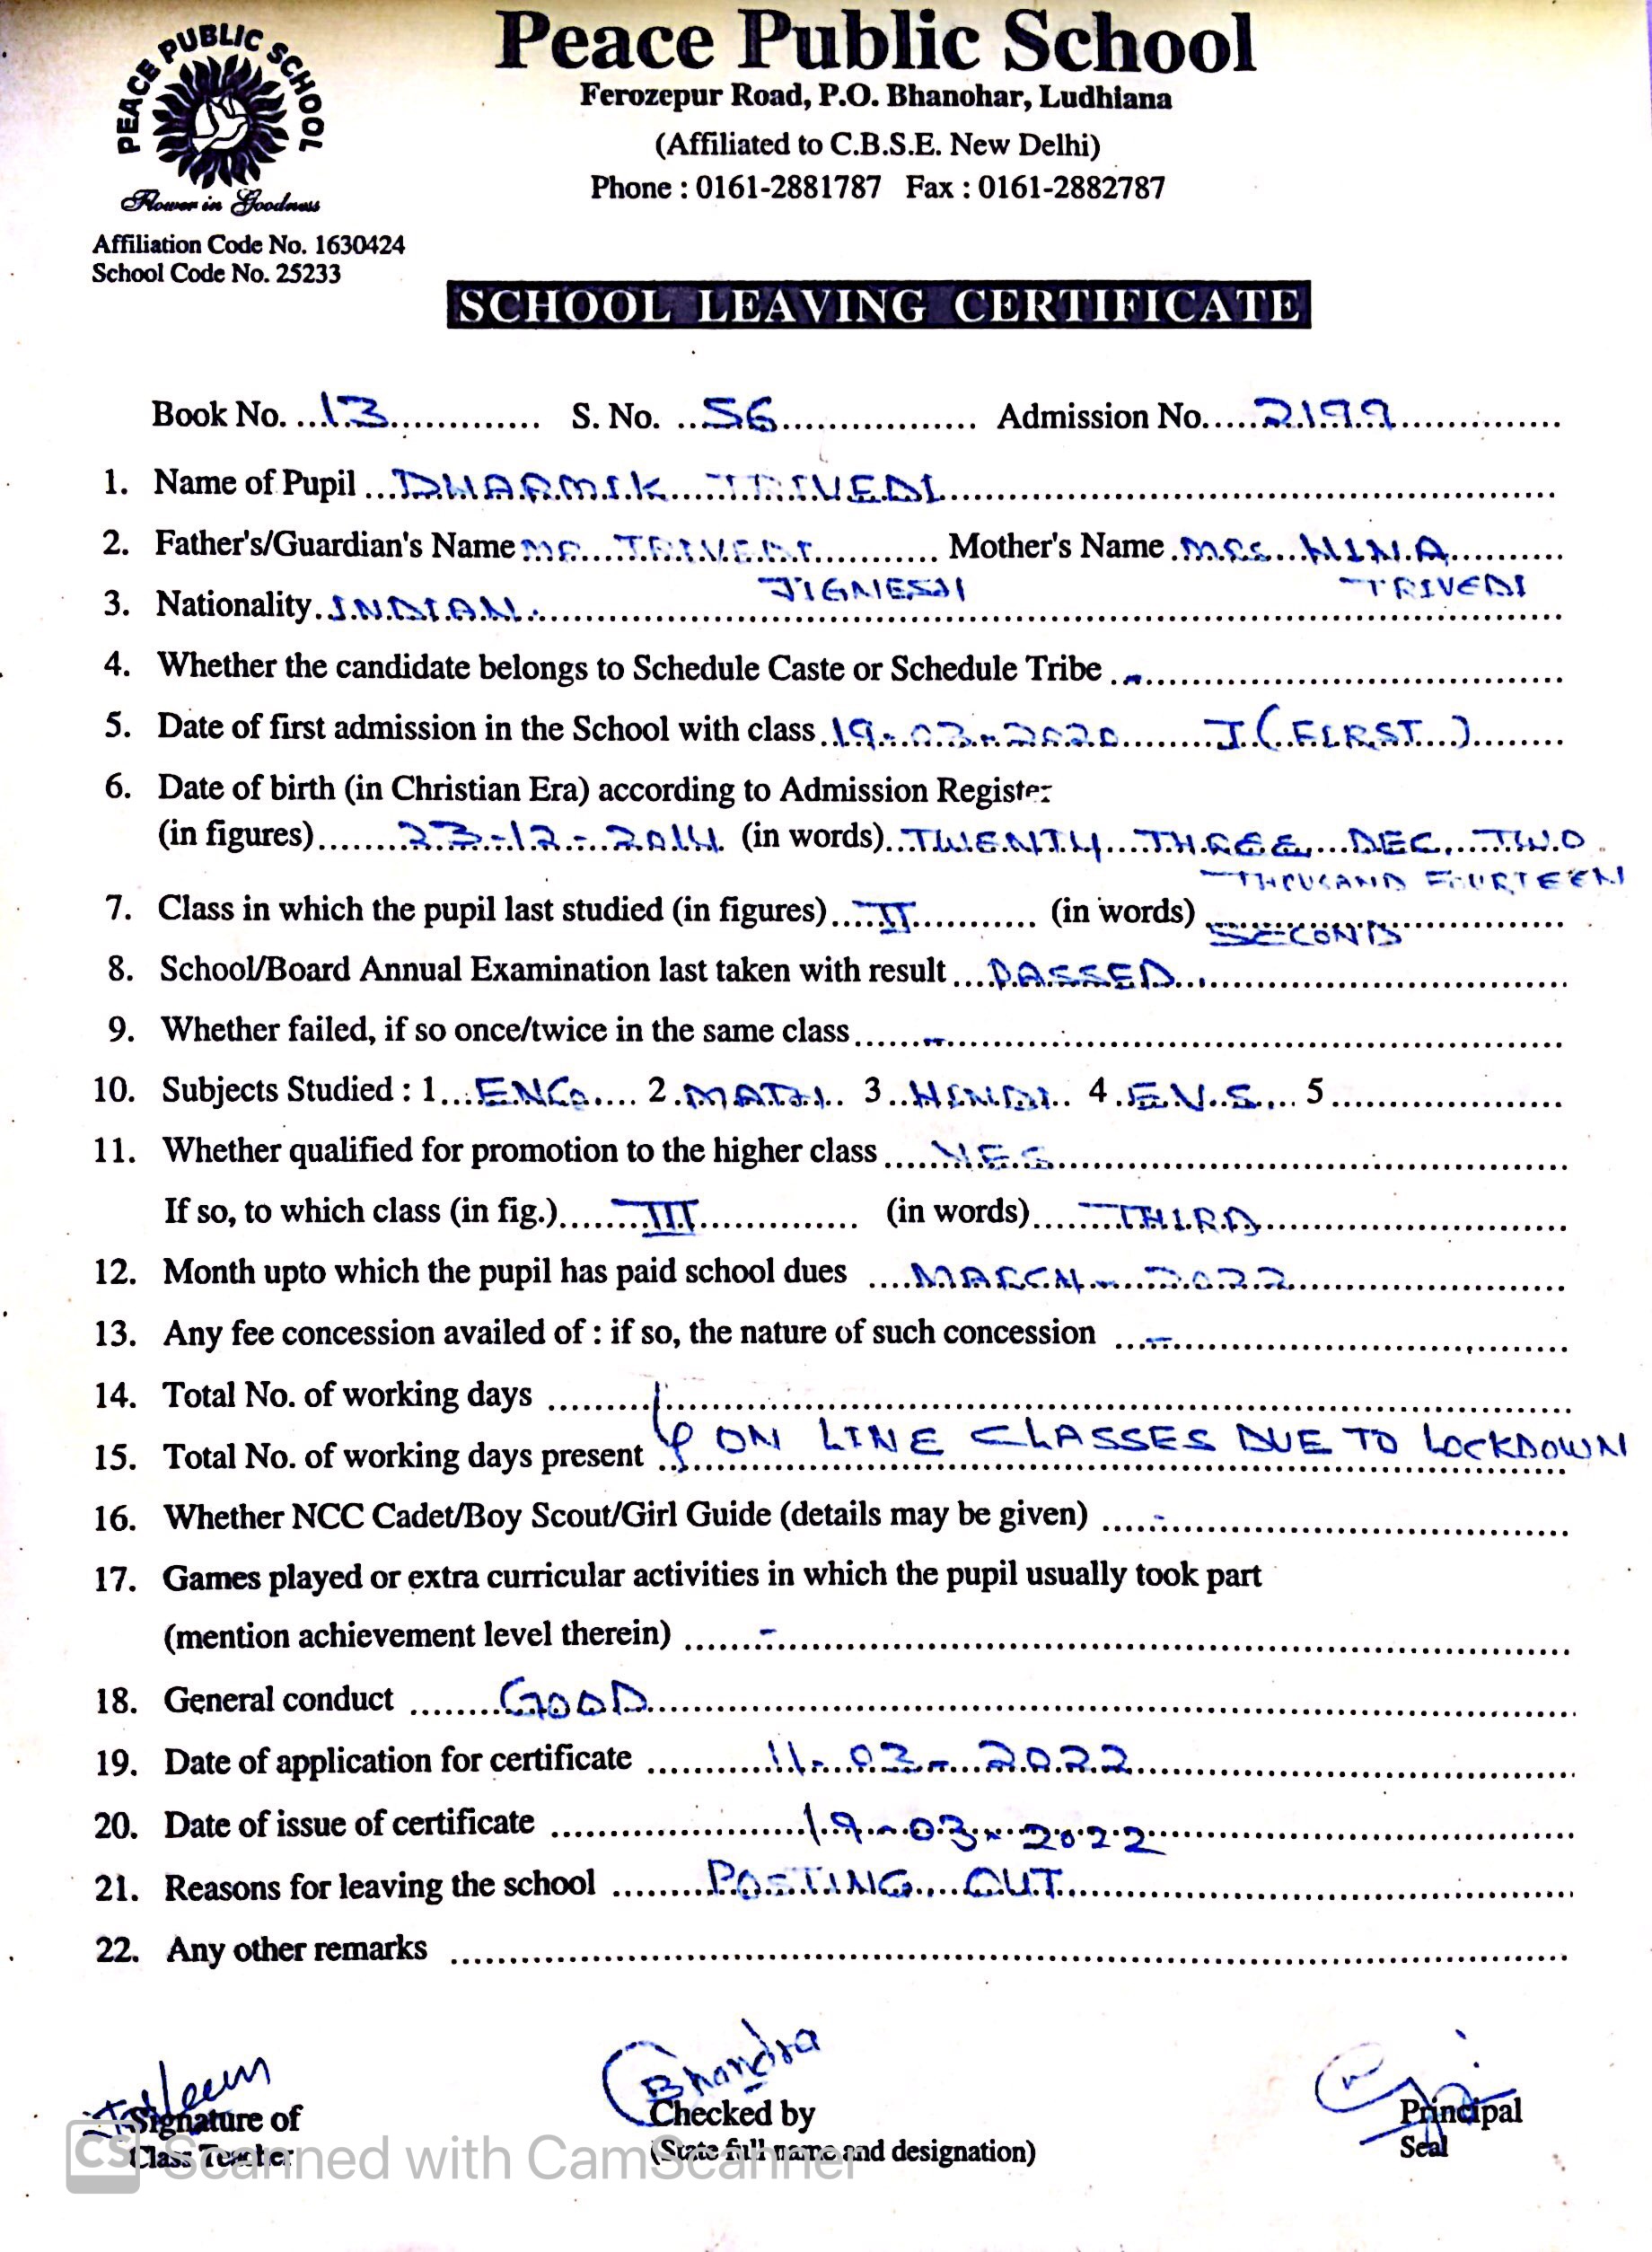 PEACE PUBLIC SCHOOL
Flower in Goodness
Peace Public School
Ferozepur Road, P.O. Bhanohar, Ludhiana
(Affiliated to C.B.S.E. New Delhi)
Phone : 0161-2881787 Fax : 0161-2882787
Affiliation Code No. 1630424
School Code No. 25233
SCHOOL LEAVING CERTIFICATE
Book No. 13 S. No. 56 Admission No. 2199
1. Name of Pupil DHARMIK TRIVEDI
2. Father's/Guardian's Name MR TRIVEDI Mother's Name MRS HINA
JIGNESH TRIVEDI
3. Nationality INDIAN
4. Whether the candidate belongs to Schedule Caste or Schedule Tribe -
5. Date of first admission in the School with class 19-03-2020 I (FIRST)
6. Date of birth (in Christian Era) according to Admission Register
(in figures) 23-12-2014 (in words) TWENTY THREE DEC. TWO
THOUSAND FOURTEEN
7. Class in which the pupil last studied (in figures) II (in words) SECOND
8. School/Board Annual Examination last taken with result PASSED
9. Whether failed, if so once/twice in the same class -
10. Subjects Studied : 1 ENG 2 MATH 3 HINDI 4 E.V.S. 5
11. Whether qualified for promotion to the higher class YES
If so, to which class (in fig.) III (in words) THIRD
12. Month upto which the pupil has paid school dues MARCH - 2022
13. Any fee concession availed of : if so, the nature of such concession -
14. Total No. of working days
ON LINE CLASSES DUE TO LOCKDOWN
15. Total No. of working days present
16. Whether NCC Cadet/Boy Scout/Girl Guide (details may be given) -
17. Games played or extra curricular activities in which the pupil usually took part
(mention achievement level therein) -
18. General conduct GOOD
19. Date of application for certificate 11-03-2022
20. Date of issue of certificate 19-03-2022
21. Reasons for leaving the school POSTING OUT
22. Any other remarks
Bhandra
Signature of Checked by Principal
Class Teacher (State full name and designation) Seal
CS Scanned with CamScanner